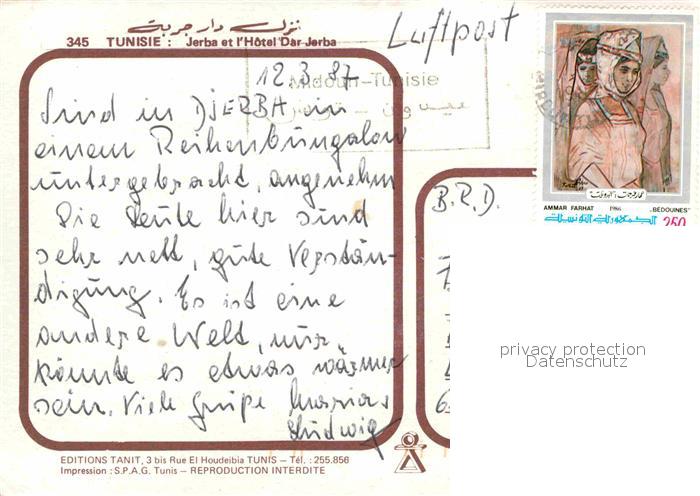 نزل دار جربة
345 TUNISIE : Jerba et l'Hôtel Dar Jerba
Luftpost
12.3.87
Midoun-Tunisie
ميدون - تونس
Sind in DJERBA in
einem Reihenbungalow
untergebracht, angenehm
Die Leute hier sind
sehr nett, gute Verstän-
digung. Es ist eine
andere Welt, nur
könnte es etwas wärmer
sein. Viele Grüße
Ludwig
B.R.D.
AMMAR FARHAT 1986 „BÉDOUINES"
الجمهورية التونسية 250
privacy protection
Datenschutz
EDITIONS TANIT, 3 bis Rue El Houdeibia TUNIS - Tél. : 255.856
Impression : S.P.A.G. Tunis - REPRODUCTION INTERDITE